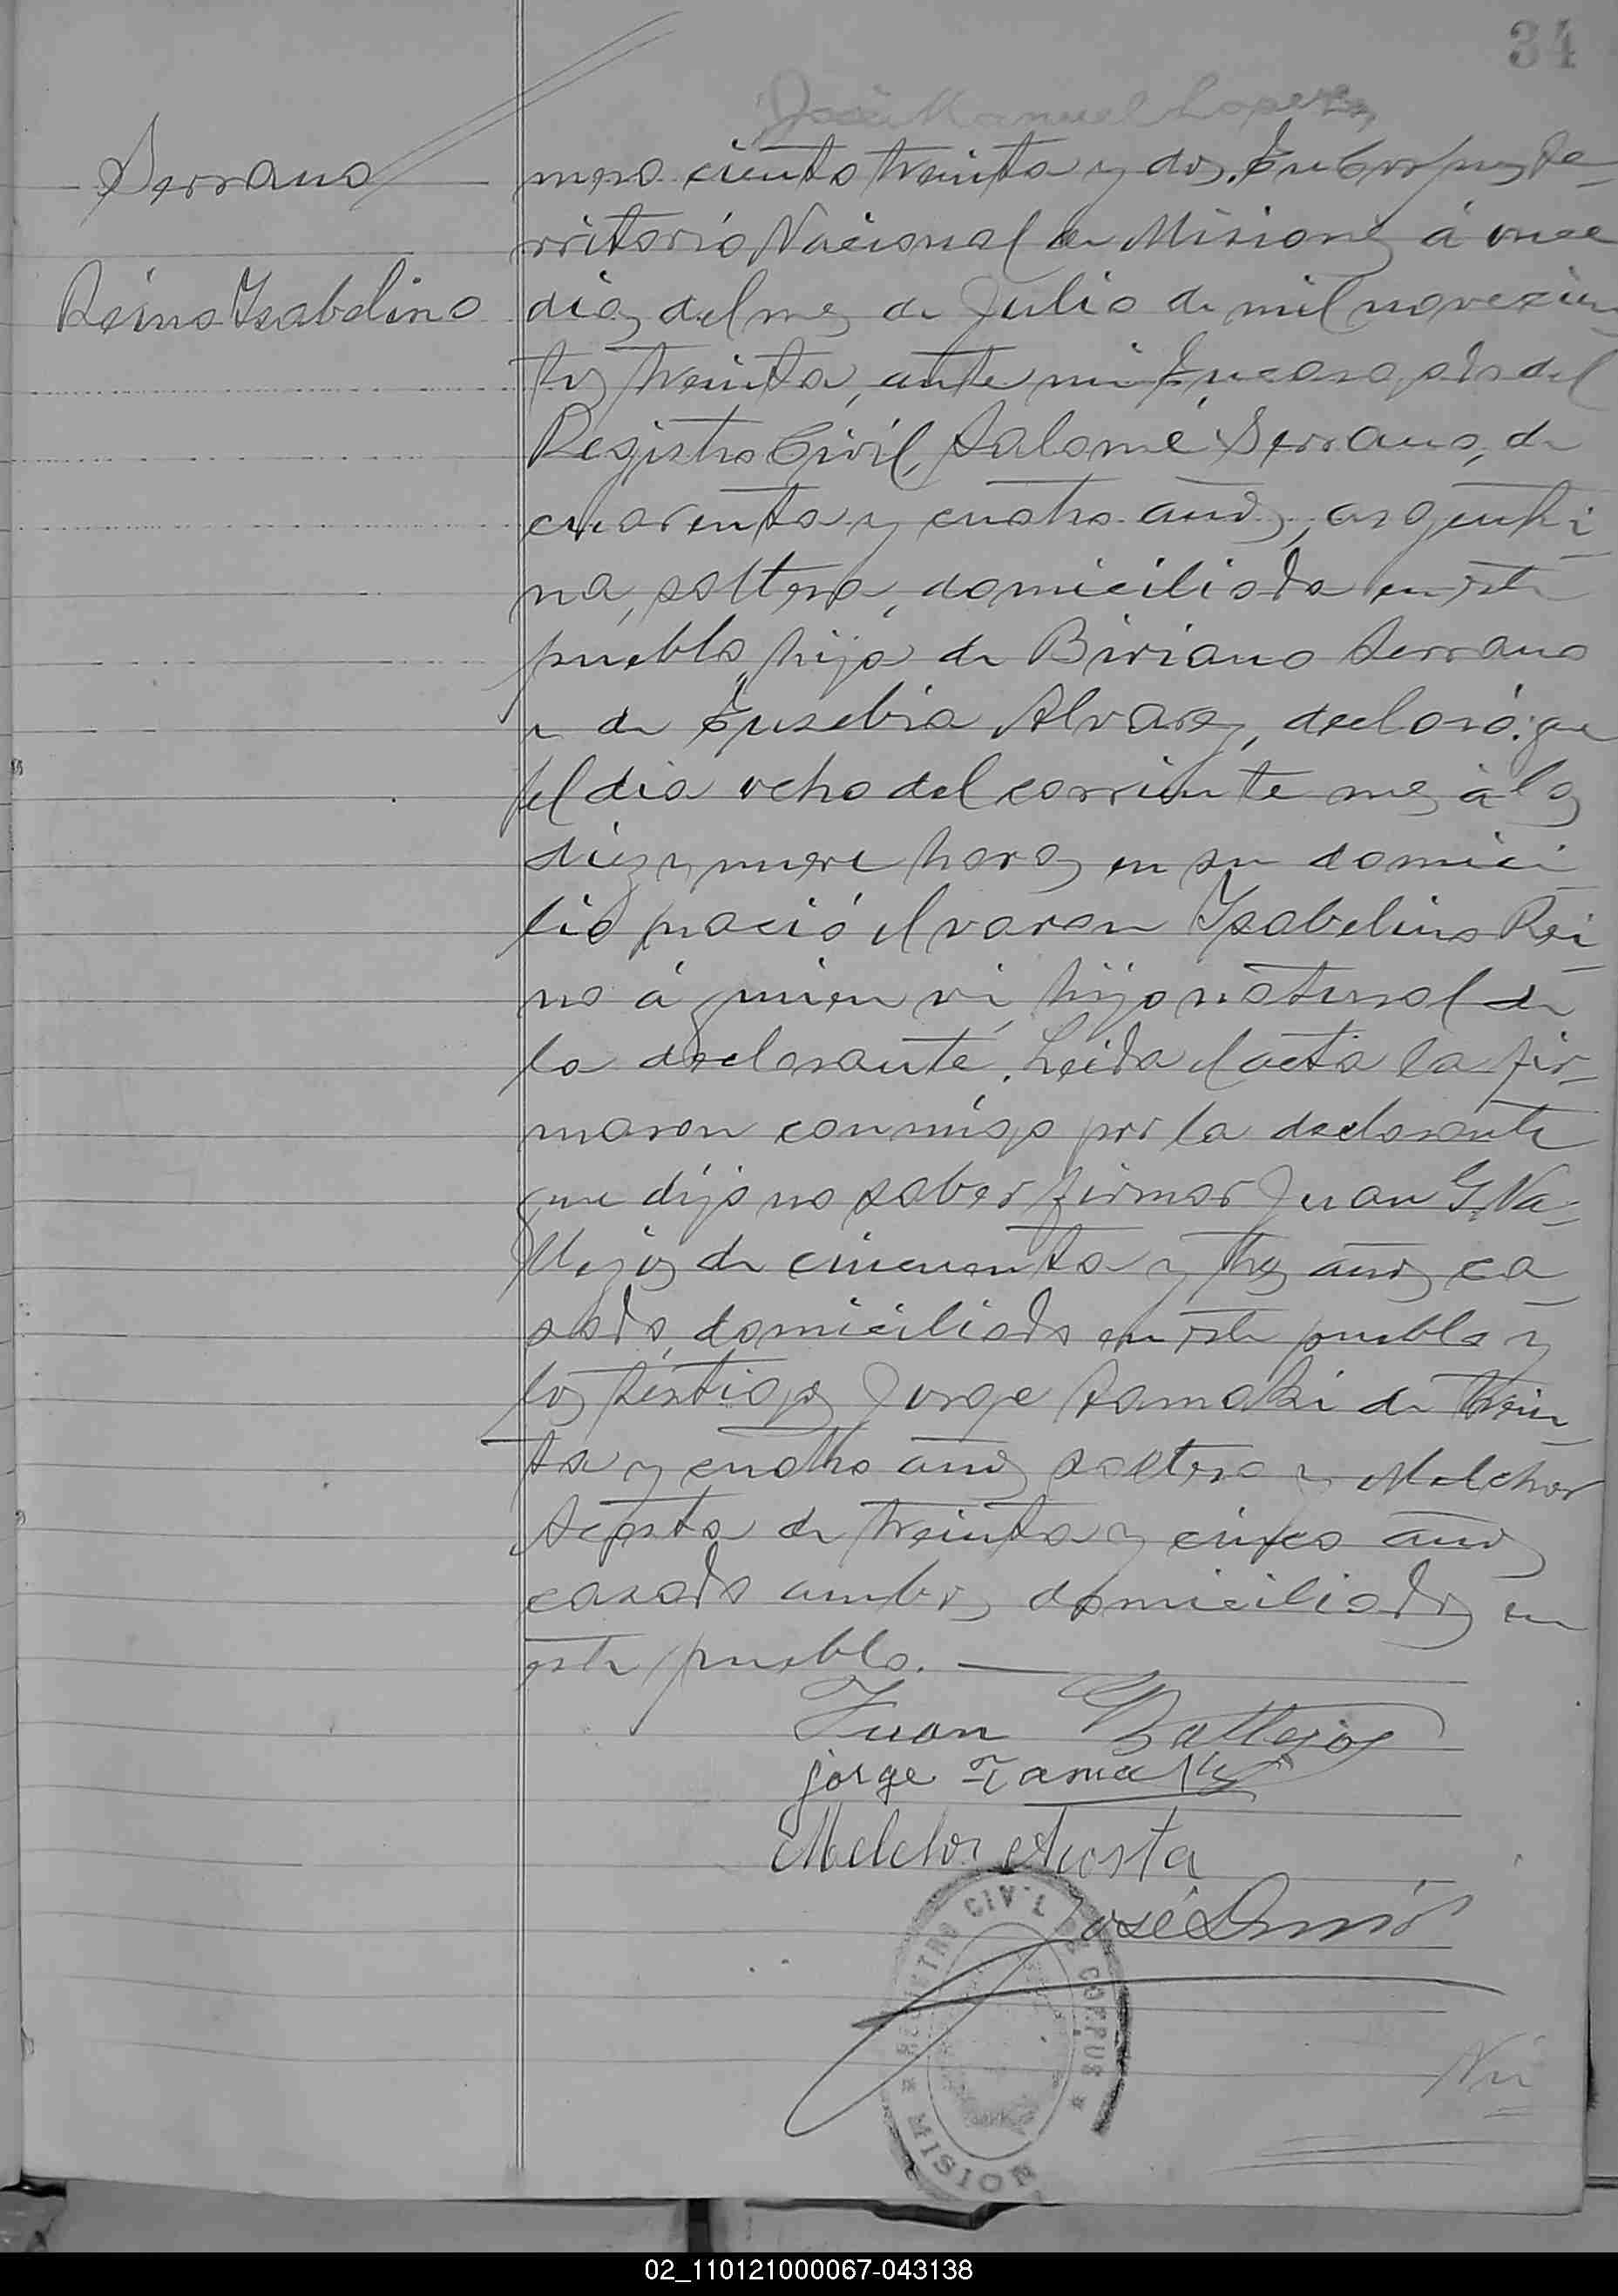 34
José Manuel Lopez
Serrano
Reino Ysabelino
mero ciento treinta y dos. En Corpus Te-
rritorio Nacional de Misiones á once
dias del mes de Julio de mil novecien
tos treinta, ante mi Encargado del
Registro Civil, Salomé Serrano, de
cuarenta y cuatro años, argenti-
na, soltera, domiciliada en este
pueblo, hija de Biviano Serrano
y de Eusebia Alvarez, declaró: que
el dia ocho del corriente mes á las
diez y nueve horas en su domici-
lio nació el varon Ysabelino Rei-
no á quien vi, hijo natural de
la declarante. Leida el acta la fir-
maron conmigo por la declarante
que dijo no saber firmar Juan G. Va-
llejos de cincuenta y tres años ca-
sado, domiciliado en este pueblo y
los testigos Jorge Samaki de trein-
ta y cuatro años soltero y Melchor
Acosta de treinta y cinco años
casado ambos domiciliados en
este pueblo.
Juan Ballejos
jorge Tamaki
Melchor Acosta
José
REGISTRO CIVIL DE CORPUS
* MISION
Nú
02_110121000067-043138